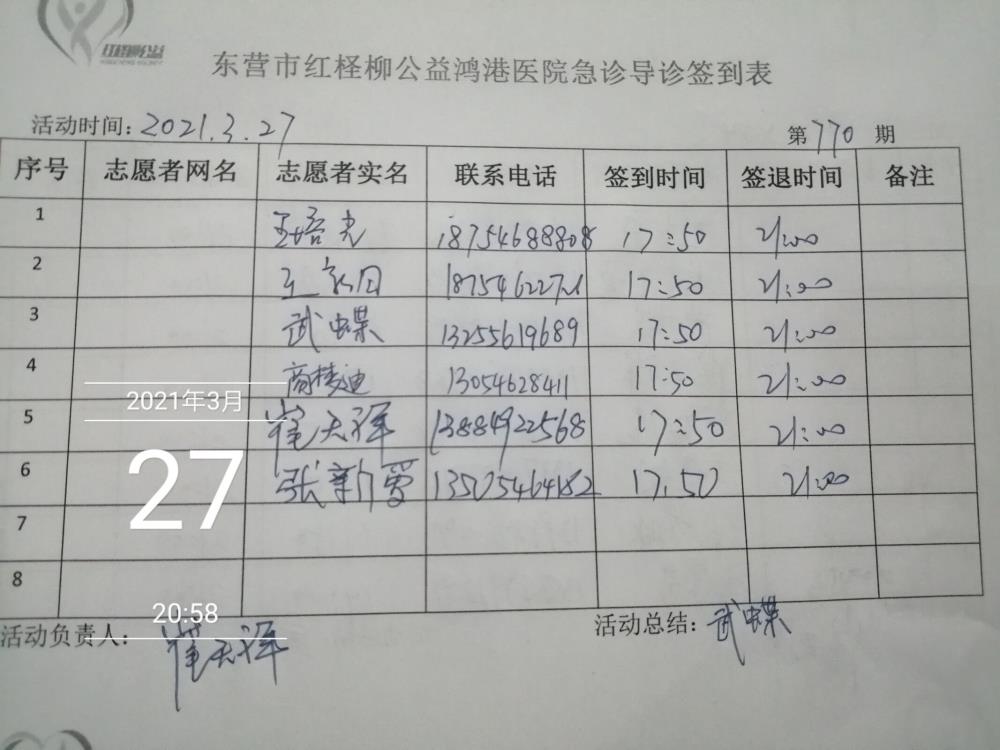 东营市红柽柳公益鸿港医院急诊导诊签到表
活动时间:2021.3.27 第770期
序号 志愿者网名 志愿者实名 联系电话 签到时间 签退时间 备注
1 王培光 18754688808 17:50 21:00
2 17:50 21:00
3 武蝶 13255619689 17:50 21:00
4 13054628411 17:50 21:00
2021年3月
5 崔天泽 13884922568 17:50 21:00
6 张新爱 13505464182 17.50 21:00
27
7
8
20:58
活动负责人: 崔天泽 活动总结: 武蝶